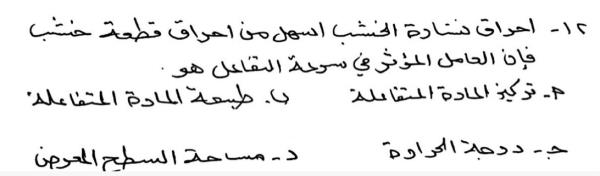 ١٢- احراق نشارة الخشب اسهل من احراق قطعة خشب
فإن العامل المؤثر في سرعة التفاعل هو .
م- تركيز المادة المتفاعلة ب. طبيعة المادة المتفاعلة.
جـ- درجة الحرارة د- مساحة السطح المعرض